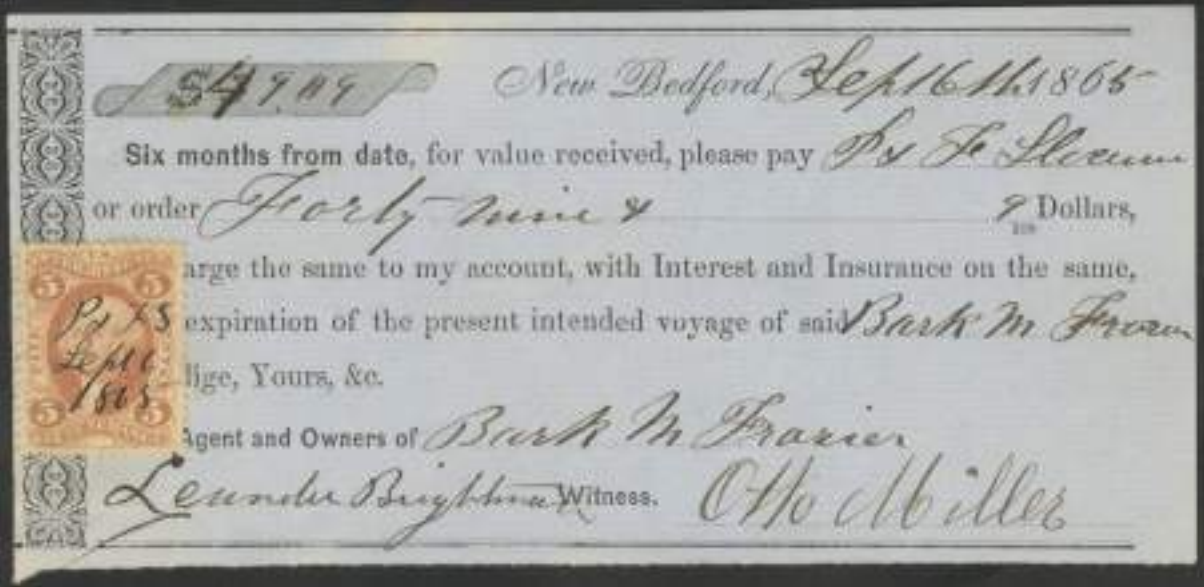 $49.09 New Bedford, Sept 6th 1865
Six months from date, for value received, please pay
or order Forty nine & 9/100 Dollars,
arge the same to my account, with Interest and Insurance on the same,
expiration of the present intended voyage of said Bark M
lige, Yours, &c.
Agent and Owners of Bark M Frazier
Leander Witness. Otto Miller
5 5
Sept 6
1865
5 5